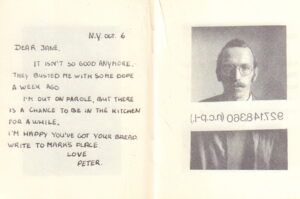 N.Y OCT. 6
DEAR JANE,
IT ISN'T SO GOOD ANYMORE.
THEY BUSTED ME WITH SOME DOPE
A WEEK AGO
I'M OUT ON PAROLE, BUT THERE
IS A CHANCE TO BE IN THE KITCHEN
FOR A WHILE.
I'M HAPPY YOU'VE GOT YOUR BREAD.
WRITE TO MARK'S PLACE.
LOVE
PETER.
927148360 (n.c.p-l.)